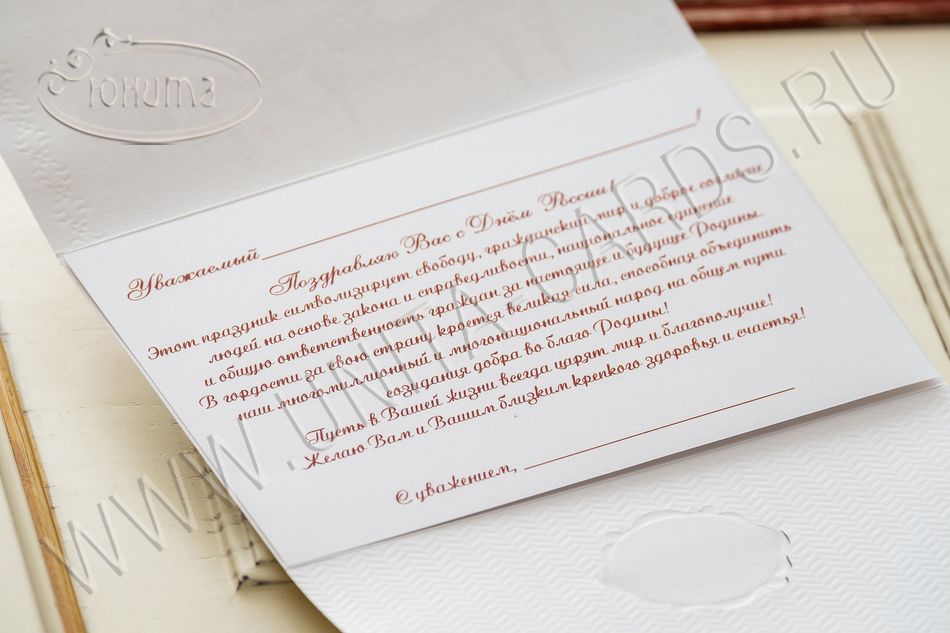 Юнита
Уважаемый ____________________!
Поздравляю Вас с Днём России!
Этот праздник символизирует свободу, гражданский мир и доброе согласие
людей на основе закона и справедливости, национальное единение
и общую ответственность граждан за настоящее и будущее Родины.
В гордости за свою страну кроется великая сила, способная объединить
наш многомиллионный и многонациональный народ на общем пути
созидания добра во благо Родины!
Пусть в Вашей жизни всегда царят мир и благополучие!
Желаю Вам и Вашим близким крепкого здоровья и счастья!
С уважением, ____________________
WWW.UNITA-CARDS.RU